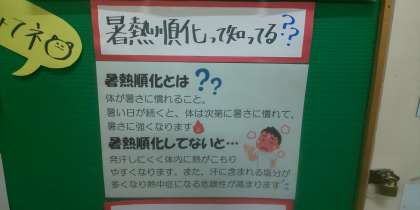 てネ
暑熱順化って知ってる??
暑熱順化とは??
体が暑さに慣れること。
暑い日が続くと、体は次第に暑さに慣れて、
暑さに強くなります
暑熱順化してないと…
発汗しにくく体内に熱がこもり
やすくなります。また、汗に含まれる塩分が
多くなり熱中症になる危険性が高まります